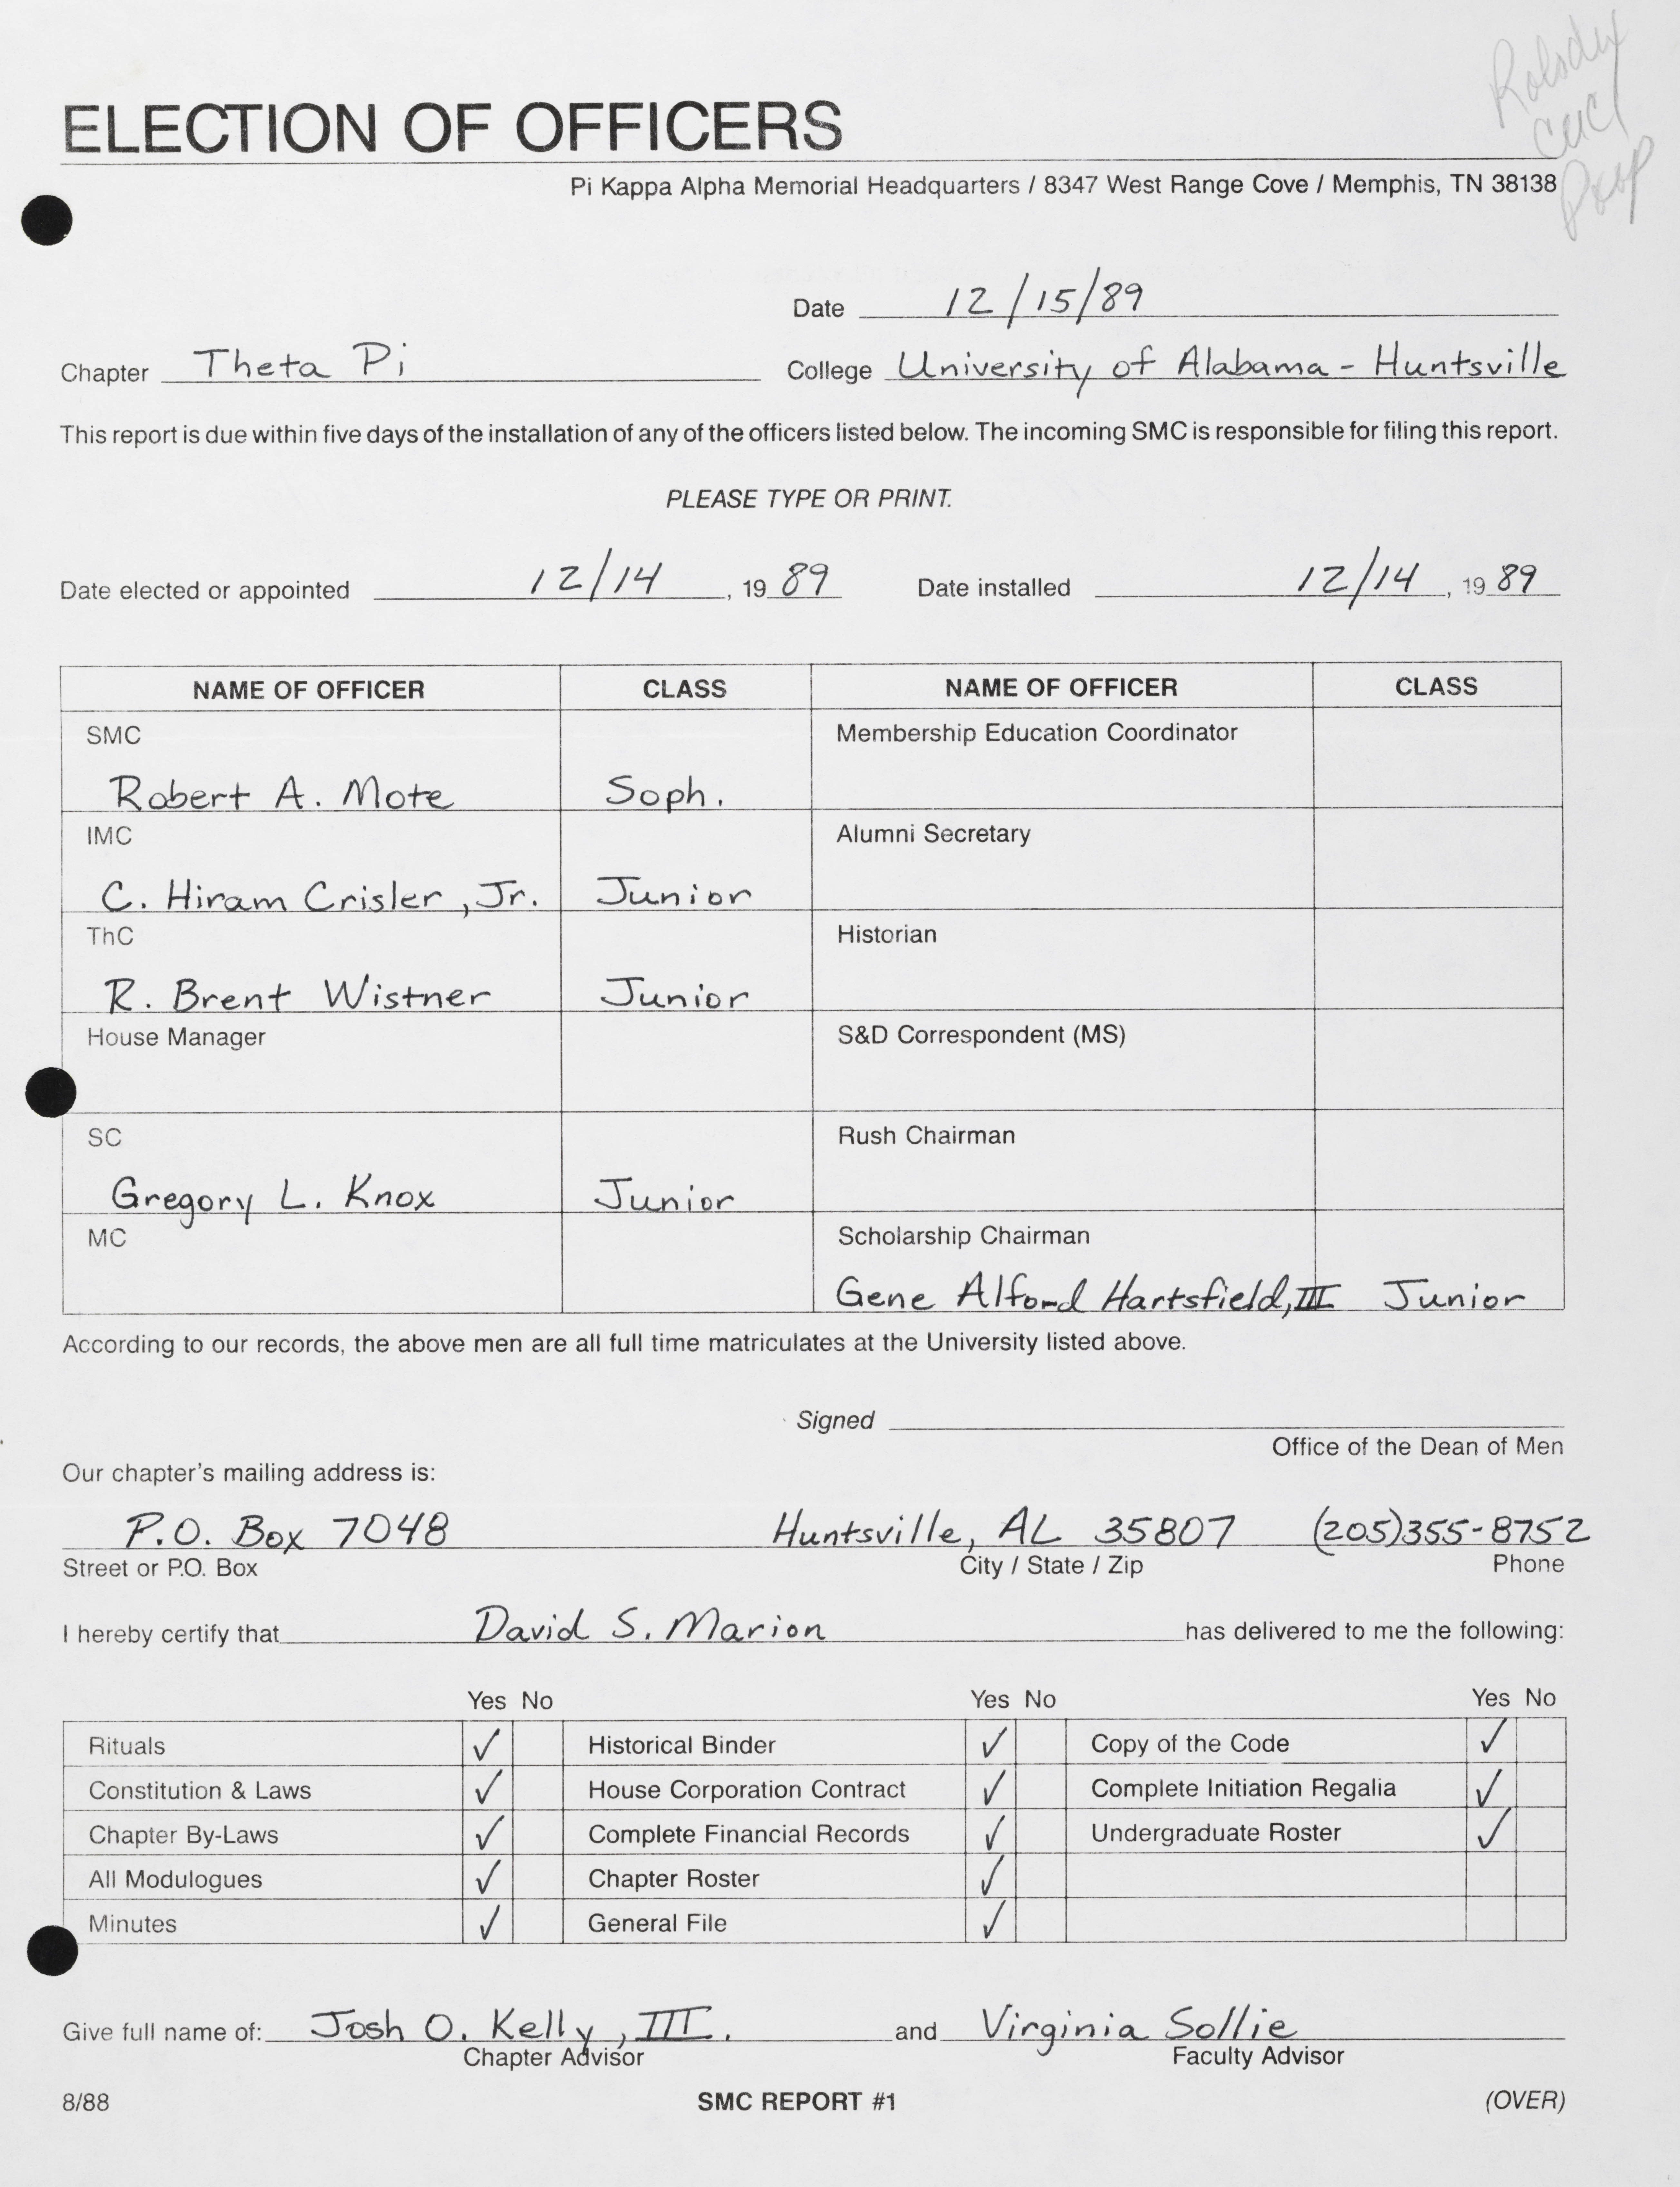 ELECTION OF OFFICERS
Pi Kappa Alpha Memorial Headquarters / 8347 West Range Cove / Memphis, TN 38138
Date 12/15/89
Chapter Theta Pi College University of Alabama - Huntsville
This report is due within five days of the installation of any of the officers listed below. The incoming SMC is responsible for filing this report.
PLEASE TYPE OR PRINT.
Date elected or appointed 12/14, 19 89 Date installed 12/14, 19 89
NAME OF OFFICER CLASS NAME OF OFFICER CLASS
SMC Membership Education Coordinator
Robert A. Mote Soph.
IMC Alumni Secretary
C. Hiram Crisler, Jr. Junior
ThC Historian
R. Brent Wistner Junior
House Manager S&D Correspondent (MS)
SC Rush Chairman
Gregory L. Knox Junior
MC Scholarship Chairman
Gene Alford Hartsfield, III Junior
According to our records, the above men are all full time matriculates at the University listed above.
Signed
Office of the Dean of Men
Our chapter's mailing address is:
P.O. Box 7048 Huntsville, AL 35807 (205)355-8752
Street or P.O. Box City / State / Zip Phone
I hereby certify that David S. Marion has delivered to me the following:
Yes No Yes No Yes No
Rituals ✓ Historical Binder ✓ Copy of the Code ✓
Constitution & Laws ✓ House Corporation Contract ✓ Complete Initiation Regalia ✓
Chapter By-Laws ✓ Complete Financial Records ✓ Undergraduate Roster ✓
All Modulogues ✓ Chapter Roster ✓
Minutes ✓ General File ✓
Give full name of: Josh O. Kelly, III. and Virginia Sollie
Chapter Advisor Faculty Advisor
8/88 SMC REPORT #1 (OVER)